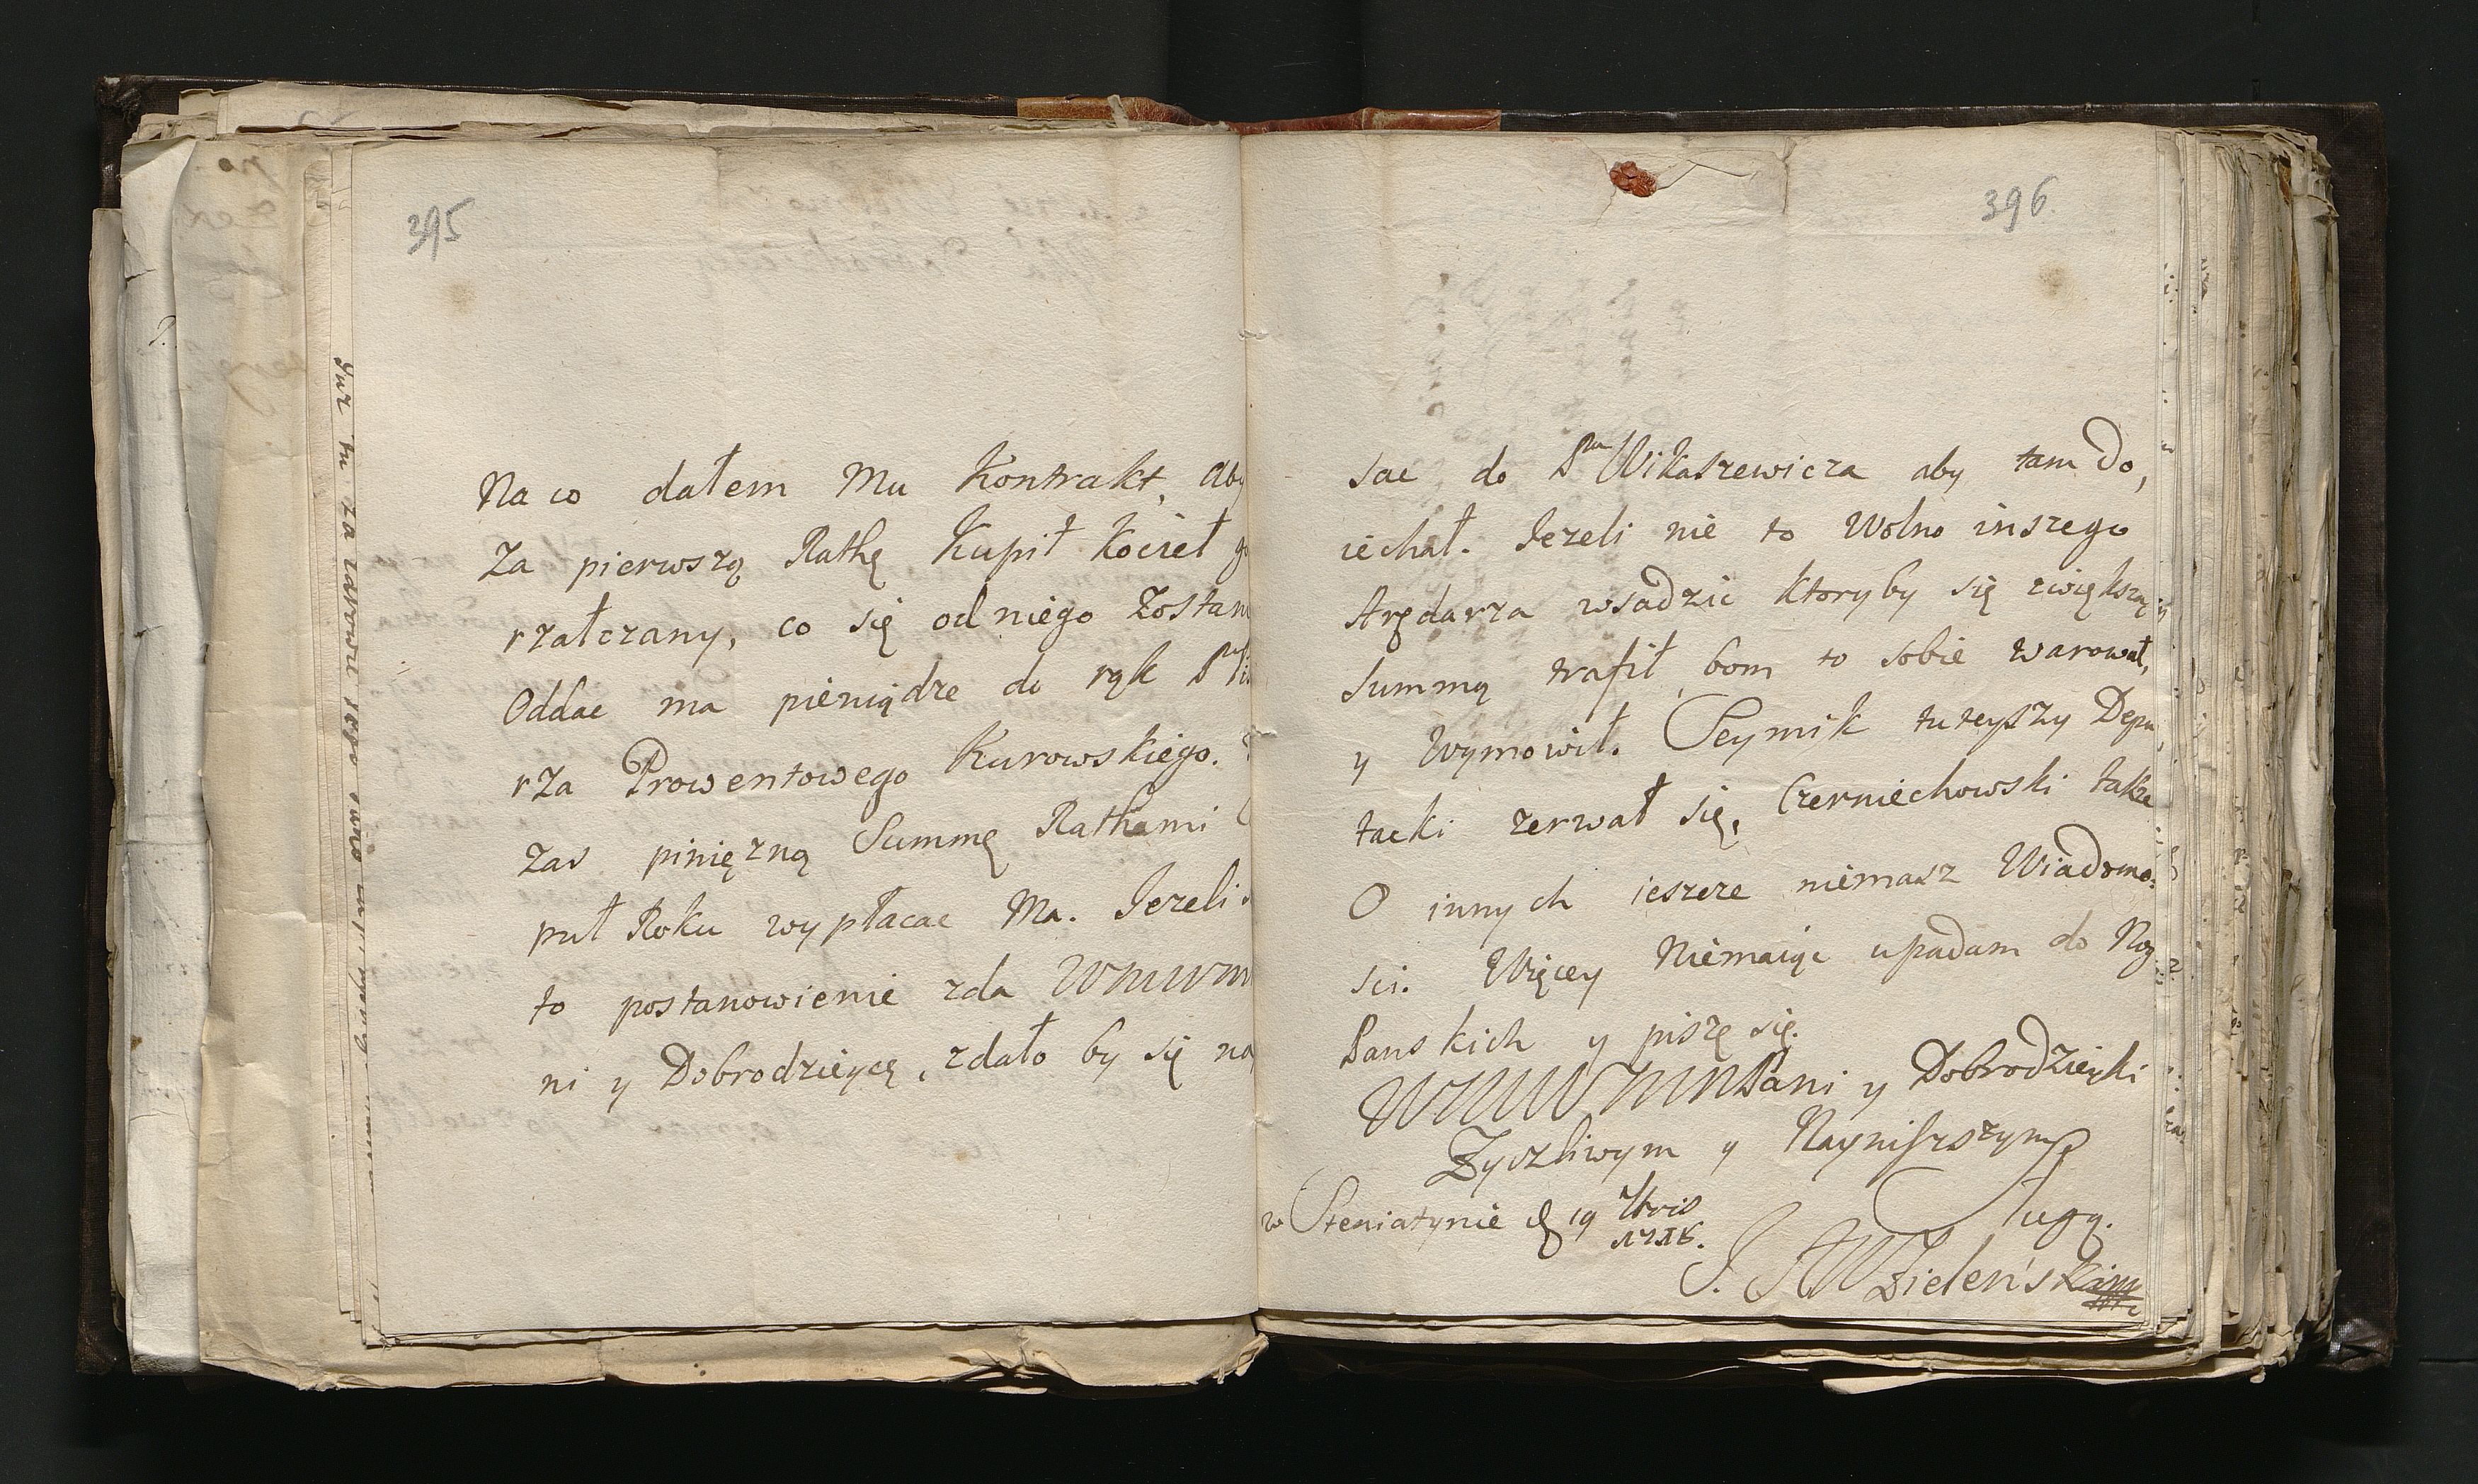 395
Na co dałem Mu Kontrakt, aby
Za pierwszą Rathę Kupił Kocieł go
rzałczany, co się od niego Zostan
Oddac ma pieniądze do rąk
rza Prowentowego Kurowskiego.
Zas piniężną Summę Rathami
puł Roku wypłacac Ma. Jezeli
to postanowienie zda WMWM
ni y Dobrodzieyce, zdało by się na
396
sac do Pna Wikaszewicza aby tam do,
iechał. Jezeli nie to Wolno inszego
Arędarza wsadzic ktoryby się zwiększą
Summą trafił, bom to sobie warował,
y Wymowił. Seymik tuteyszy Depu,
tacki zerwał się, Czerniechowski także
O innych ieszcze niemasz Wiadomo:
sci. Więcey Niemaiąc upadam do Nog
Panskich y piszę się.
WMWMMPani y Dobrodzieyki
Zyczliwym y Nayniższym
Sługą.
w Steniatynie d 19 7bris
Zieleński